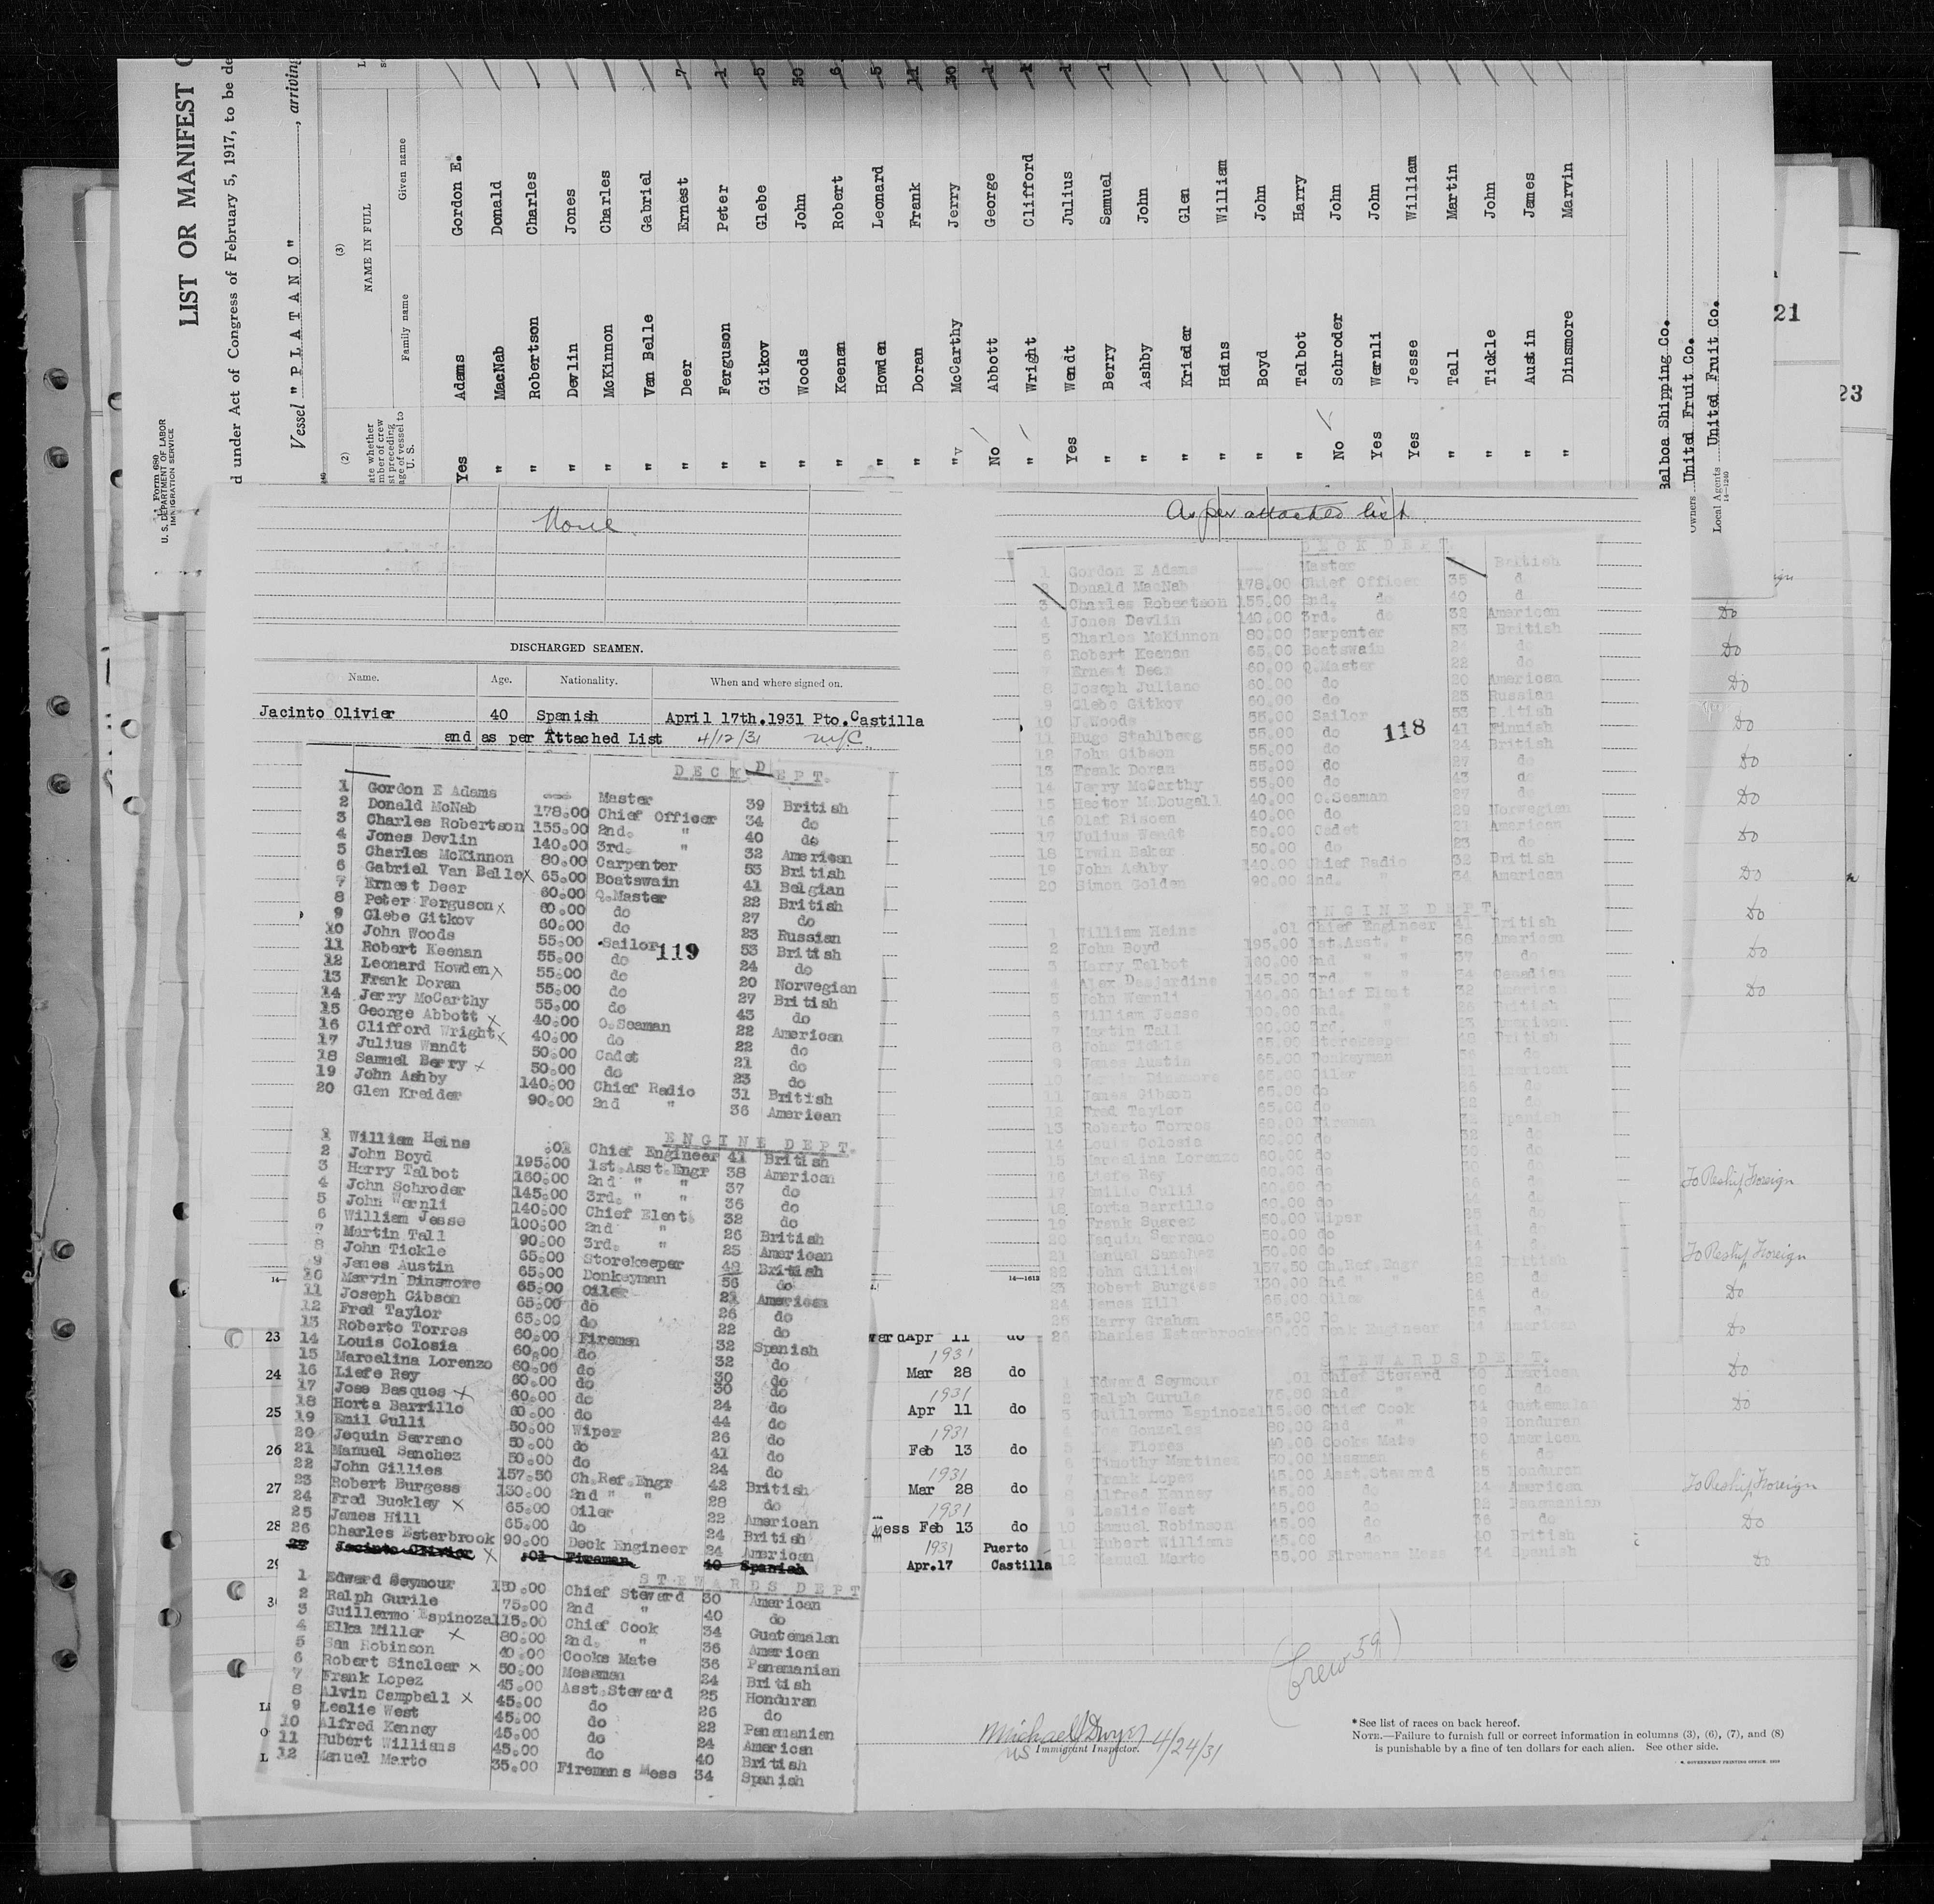 LIST OR MANIFEST
d under Act of Congress of February 5, 1917, to be de
Vessel "PLATANO", arriving
Form 680
U. S. DEPARTMENT OF LABOR
IMMIGRATION SERVICE
(2)
ate whether
mber of crew
st preceding
age of vessel to
U. S.
(3)
NAME IN FULL
Family name Given name
Yes Adams Gordon E.
" MacNab Donald
" Robertson Charles
" Devlin Jones
" McKinnon Charles
" Van Belle Gabriel
" Deer Ernest 7
" Ferguson Peter 1
" Gitkov Glebe 5
" Woods John 30
" Keenan Robert 6
" Howden Leonard 5
" Doran Frank 11
" McCarthy Jerry 30
No Abbott George 1
" Wright Clifford
Yes Wendt Julius 1
" Berry Samuel 1
" Ashby John
" Krieder Glen
" Heins William
" Boyd John
" Talbot Harry
No Schroder John
Yes Wernli John
Yes Jesse William
" Tall Martin
" Tickle John
" Austin James
" Dinsmore Marvin
Balboa Shipping Co.
Owners United Fruit Co.
Local Agents United Fruit Co.
14-1240
21
23
None
DISCHARGED SEAMEN.
Name. Age. Nationality. When and where signed on.
Jacinto Olivier 40 Spanish April 17th.1931 Pto.Castilla
and as per Attached List 4/12/31 N.Y.C.
DECK DEPT.
1 Gordon E Adams --- Master 39 British
2 Donald McNab 178.00 Chief Officer 34 do
3 Charles Robertson 155.00 2nd. " 40 do
4 Jones Devlin 140.00 3rd. " 32 American
5 Charles McKinnon 80.00 Carpenter 53 British
6 Gabriel Van Belle x 65.00 Boatswain 41 Belgian
7 Ernest Deer 60.00 Q.Master 22 British
8 Peter Ferguson x 60.00 do 27 do
9 Glebe Gitkov 60.00 do 23 Russian
10 John Woods 55.00 Sailor 53 British
119
11 Robert Keenan 55.00 do 24 do
12 Leonard Howden x 55.00 do 20 Norwegian
13 Frank Doran 55.00 do 27 British
14 Jerry McCarthy 55.00 do 43 do
15 George Abbott x 40.00 O.Seaman 22 American
16 Clifford Wright x 40.00 do 22 do
17 Julius Wendt 50.00 Cadet 21 do
18 Samuel Berry x 50.00 do 23 do
19 John Ashby 140.00 Chief Radio 31 British
20 Glen Kreider 90.00 2nd " 36 American
ENGINE DEPT.
1 William Heins .01 Chief Engineer 41 British
2 John Boyd 195.00 1st.Asst.Engr 38 American
3 Harry Talbot 160.00 2nd " " 37 do
4 John Schroder 145.00 3rd. " " 36 do
5 John Wernli 140.00 Chief Elect. 32 do
6 William Jesse 100.00 2nd " 26 British
7 Martin Tall 90.00 3rd. " 25 American
8 John Tickle 65.00 Storekeeper 49 British
9 James Austin 65.00 Donkeyman 56 do
10 Marvin Dinsmore 65.00 Oiler 21 American
11 Joseph Gibson 65.00 do 26 do
12 Fred Taylor 65.00 do 22 do
13 Roberto Torres 60.00 Fireman 32 Spanish
14 Louis Colosia 60.00 do 32 do
15 Marcelina Lorenzo 60.00 do 30 do
16 Liefe Rey 60.00 do 30 do
17 Jose Basques x 60.00 do 24 do
18 Horta Barrillo 60.00 do 44 do
19 Emil Gulli 50.00 Wiper 26 do
20 Jequin Serrano 50.00 do 41 do
21 Manuel Sanchez 50.00 do 24 do
22 John Gillies 157.50 Ch.Ref.Engr 42 British
23 Robert Burgess 130.00 2nd " " 28 do
24 Fred Buckley x 65.00 Oiler 22 American
25 James Hill 65.00 do 24 British
26 Charles Esterbrook 90.00 Deck Engineer 24 American
27 Jacinto Olivier x .01 Fireman 40 Spanish
STEWARDS DEPT
1 Edward Seymour 150.00 Chief Steward 30 American
2 Ralph Gurile 75.00 2nd " 40 do
3 Guillermo Espinoza 115.00 Chief Cook 34 Guatemalan
4 Elka Miller x 80.00 2nd. " 36 American
5 Sam Robinson 40.00 Cooks Mate 36 Panamanian
6 Robert Sinclear x 50.00 Messman 24 British
7 Frank Lopez 45.00 Asst.Steward 25 Honduran
8 Alvin Campbell x 45.00 do 26 do
9 Leslie West 45.00 do 22 Panamanian
10 Alfred Kenney 45.00 do 24 American
11 Hubert Williams 45.00 do 40 British
12 Manuel Marto 35.00 Firemans Mess 34 Spanish
As per attached list
DECK DEPT.
1 Gordon E Adams Master British
2 Donald MacNab 178.00 Chief Officer 35 d
3 Charles Robertson 155.00 2nd. do 40 d
4 Jones Devlin 140.00 3rd. do 32 American
5 Charles McKinnon 80.00 Carpenter 53 British
6 Robert Keenan 65.00 Boatswain 24 do
7 Ernest Deer 60.00 Q.Master 22 do
8 Joseph Juliano 60.00 do 20 American
9 Glebe Gitkov 60.00 do 23 Russian
10 J.Woods 55.00 Sailor 53 British
11 Hugo Stahlberg 55.00 do 41 Finnish
118
12 John Gibson 55.00 do 24 British
13 Frank Doran 55.00 do 27 do
14 Jerry McCarthy 55.00 do 43 do
15 Hector McDougall 40.00 O.Seaman 27 do
16 Olaf Risoen 40.00 do 29 Norwegian
17 Julius Wendt 50.00 Cadet 21 American
18 Irwin Baker 50.00 do 23 do
19 John Ashby 140.00 Chief Radio 32 British
20 Simon Golden 90.00 2nd. " 34 American
ENGINE DEPT.
1 William Heins .01 Chief Engineer 41 British
2 John Boyd 195.00 1st.Asst. " 38 American
3 Harry Telbot 160.00 2nd " " 37 do
4 Alex Desjardine 145.00 3rd " " 34 Canadian
5 John Wernli 140.00 Chief Elect 32 American
6 William Jesse 100.00 2nd. " 26 British
7 Martin Tall 90.00 3rd. "
8 John Tickle 65.00 Storekeeper British
9 James Austin 65.00 Donkeyman do
Marvin Dinsmore 65.00 Oiler American
11 James Gibson 65.00 do 26 do
12 Fred Taylor 65.00 do 22 do
13 Roberto Torres Fireman Spanish
14 Louis Colosia 60.00 do 32 do
15 Marcelina Lorenzo 60.00 do
16 Liefe Rey 60.00 do
17 Emilio Gulli 60.00 do
18 Horta Barrillo 60.00 do
19 Frank Suarez 50.00 Wiper
20 Jequin Serrano 50.00 do
21 Manuel Sanchez 50.00 do
22 John Gillies 157.50 Ch.Ref.Engr 42 British
23 Robert Burgess 130.00 2nd " " 28 do
24 James Hill 65.00 Oiler 24 do
25 Harry Graham 65.00 do
26 Charles Esterbrook Deck Engineer 24 American
STEWARDS DEPT.
1 Edward Seymour .01 Chief Steward 30 American
2 Ralph Gurule 75.00 2nd " 40 do
3 Guillermo Espinoza 115.00 Chief Cook 34 Guatemala
Gonzales 80.00 2nd " 29 Honduran
Flores 40.00 Cooks Mate 30 American
6 Timothy Martinez 50.00 Messman 26 do
Frank Lopez 45.00 Asst.Steward 25 Honduran
8 Alfred Kenney 45.00 do 24 American
Leslie West 45.00 do 22 Panamanian
10 Samuel Robinson 45.00 do 36 do
11 Hubert Williams 45.00 do 40 British
12 Manuel Marto 35.00 Firemans Mess 34 Spanish
14-1613
23 Apr 11 do
1931
24 Mar 28 do
1931
25 Apr 11 do
1931
26 Feb 13 do
1931
27 Mar 28 do
1931
28 Mess Feb 13 do
1931 Puerto
29 Apr.17 Castilla
Do
Do
Do
Do
Do
Do
Do
Do
Do
Do
Do
To Reship Foreign
To Reship Foreign
Do
Do
Do
Do
To Reship Foreign
Do
Do
(Crew 59)
Michael J Dwyer 4/24/31
US Immigrant Inspector.
*See list of races on back hereof.
NOTE.—Failure to furnish full or correct information in columns (3), (6), (7), and (8)
is punishable by a fine of ten dollars for each alien. See other side.